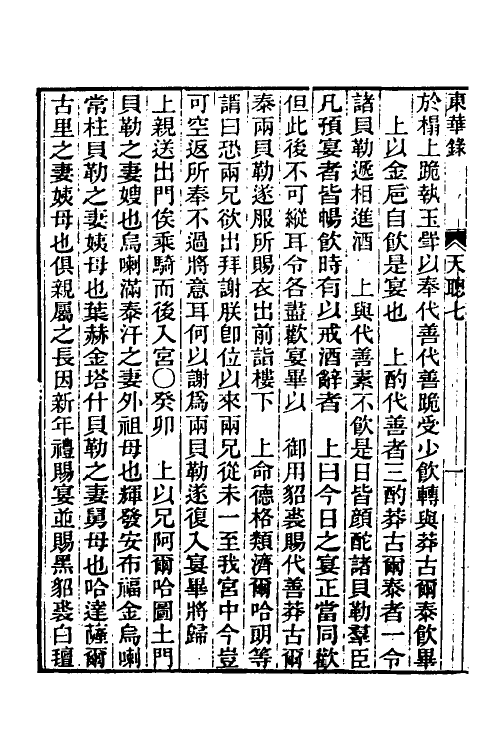 東華錄　天聰七　一
於榻上跪執玉斝以奉代善代善跪受少飲轉與莽古爾泰飲畢
上以金巵自飲是宴也　上酌代善者三酌莽古爾泰者一令
諸貝勒遞相進酒　上與代善素不飲是日皆顏酡諸貝勒羣臣
凡預宴者皆暢飲時有以戒酒辭者　上曰今日之宴正當同歡
但此後不可縱耳令各盡歡宴畢以　御用貂裘賜代善莽古爾
泰兩貝勒遂服所賜衣出前詣樓下　上命德格類濟爾哈朗等
謂曰恐兩兄欲出拜謝朕卽位以來兩兄從未一至我宮中今豈
可空返所奉不過將意耳何以謝爲兩貝勒遂復入宴畢將歸
上親送出門俟乘騎而後入宮〇癸卯　上以兄阿爾哈圖土門
貝勒之妻嫂也烏喇滿泰汗之妻外祖母也輝發安布福金烏喇
常柱貝勒之妻姨母也葉赫金塔什貝勒之妻舅母也哈達薩爾
古里之妻姨母也俱親屬之長因新年禮賜宴並賜黑貂裘白氊